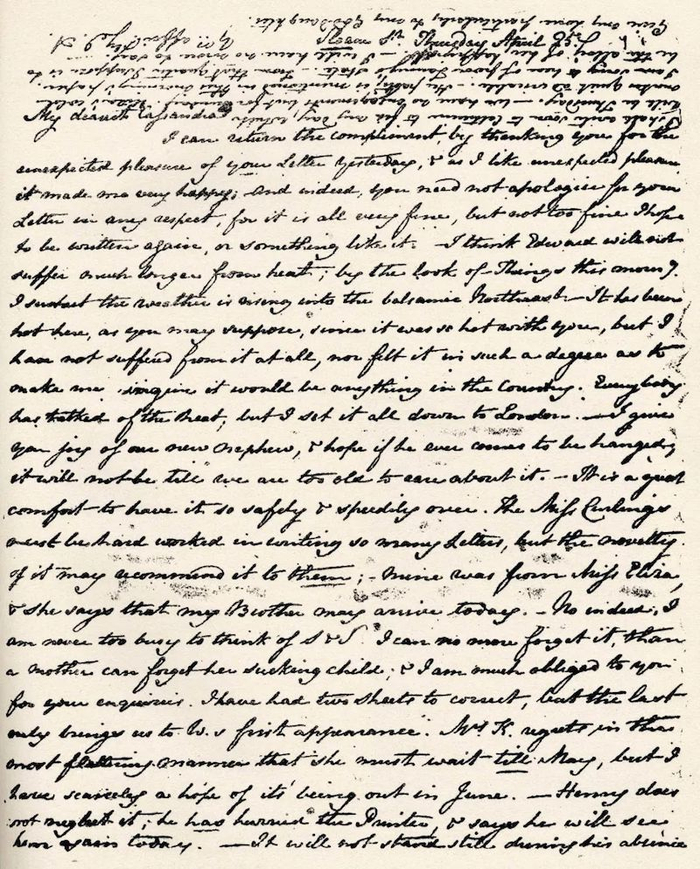 Sloane St Thursday April 25.
My dearest Cassandra
I can return the compliment by thanking you for the
unexpected pleasure of your Letter yesterday, & as I like unexpected pleasure,
it made me very happy; And indeed, you need not apologise for your
Letter in any respect, for it is all very fine, but not too fine I hope
to be written again, or something like it. — I think Edward will not
suffer much longer from heat; by the look of Things this morng.
I suspect the weather is rising into the balsamic Northeast. — It has been
hot here, as you may suppose, since it was so hot with you, but I
have not suffered from it at all, nor felt it in such a degree as to
make me imagine it would be anything in the Country. Everybody
has talked of the heat, but I set it all down to London. — I give
you joy of our new nephew, & hope if he ever comes to be hanged,
it will not be till we are too old to care about it. — It is a great
comfort to have it so safely & speedily over. The Miss Curlings
must be hard worked in writing so many Letters, but the novelty
of it may recommend it to them; — mine was from Miss Eliza,
& she says that my Brother may arrive today. — No indeed, I
am never too busy to think of S&S. I can no more forget it, than
a mother can forget her sucking child; & I am much obliged to you
for your enquiries. I have had two sheets to correct, but the last
only brings us to W.s first appearance. Mrs K. regrets in the
most flattering manner that she must wait till May, but I
have scarcely a hope of its being out in June. — Henry does
not neglect it; he has hurried the Printer, & says he will see
him again today. — It will not stand still during his absence
will be Thursday. — We have no engagements but for Sunday. Eliza's cold
makes quiet adviseable. — Her party is mentioned in this morning's paper.
I am sorry to hear of poor Fanny's state. — From that quarter I suppose is to
be the alloy of her happiness. — I will have no more to say.
Yrs affecly J. A.
Give my Love particularly to my God-Daughter.